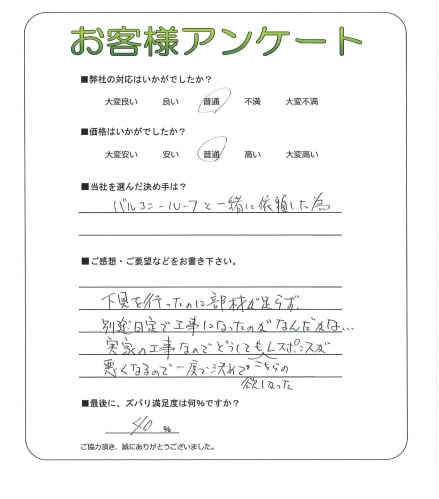 お客様アンケート
■弊社の対応はいかがでしたか？
大変良い 良い 普通 不満 大変不満
■価格はいかがでしたか？
大変安い 安い 普通 高い 大変高い
■当社を選んだ決め手は？
バルコニールーフと一緒に依頼した為
■ご感想・ご要望などをお書き下さい。
下見を行ったのに部材が足らず、
別途日定で工事になったのがなんだかな…
実家の工事なのでどうしてもレスポンスが
悪くなるので一度で済れて
こちらの
欲しなった
■最後に、ズバリ満足度は何%ですか？
40 %
ご協力頂き、誠にありがとうございました。